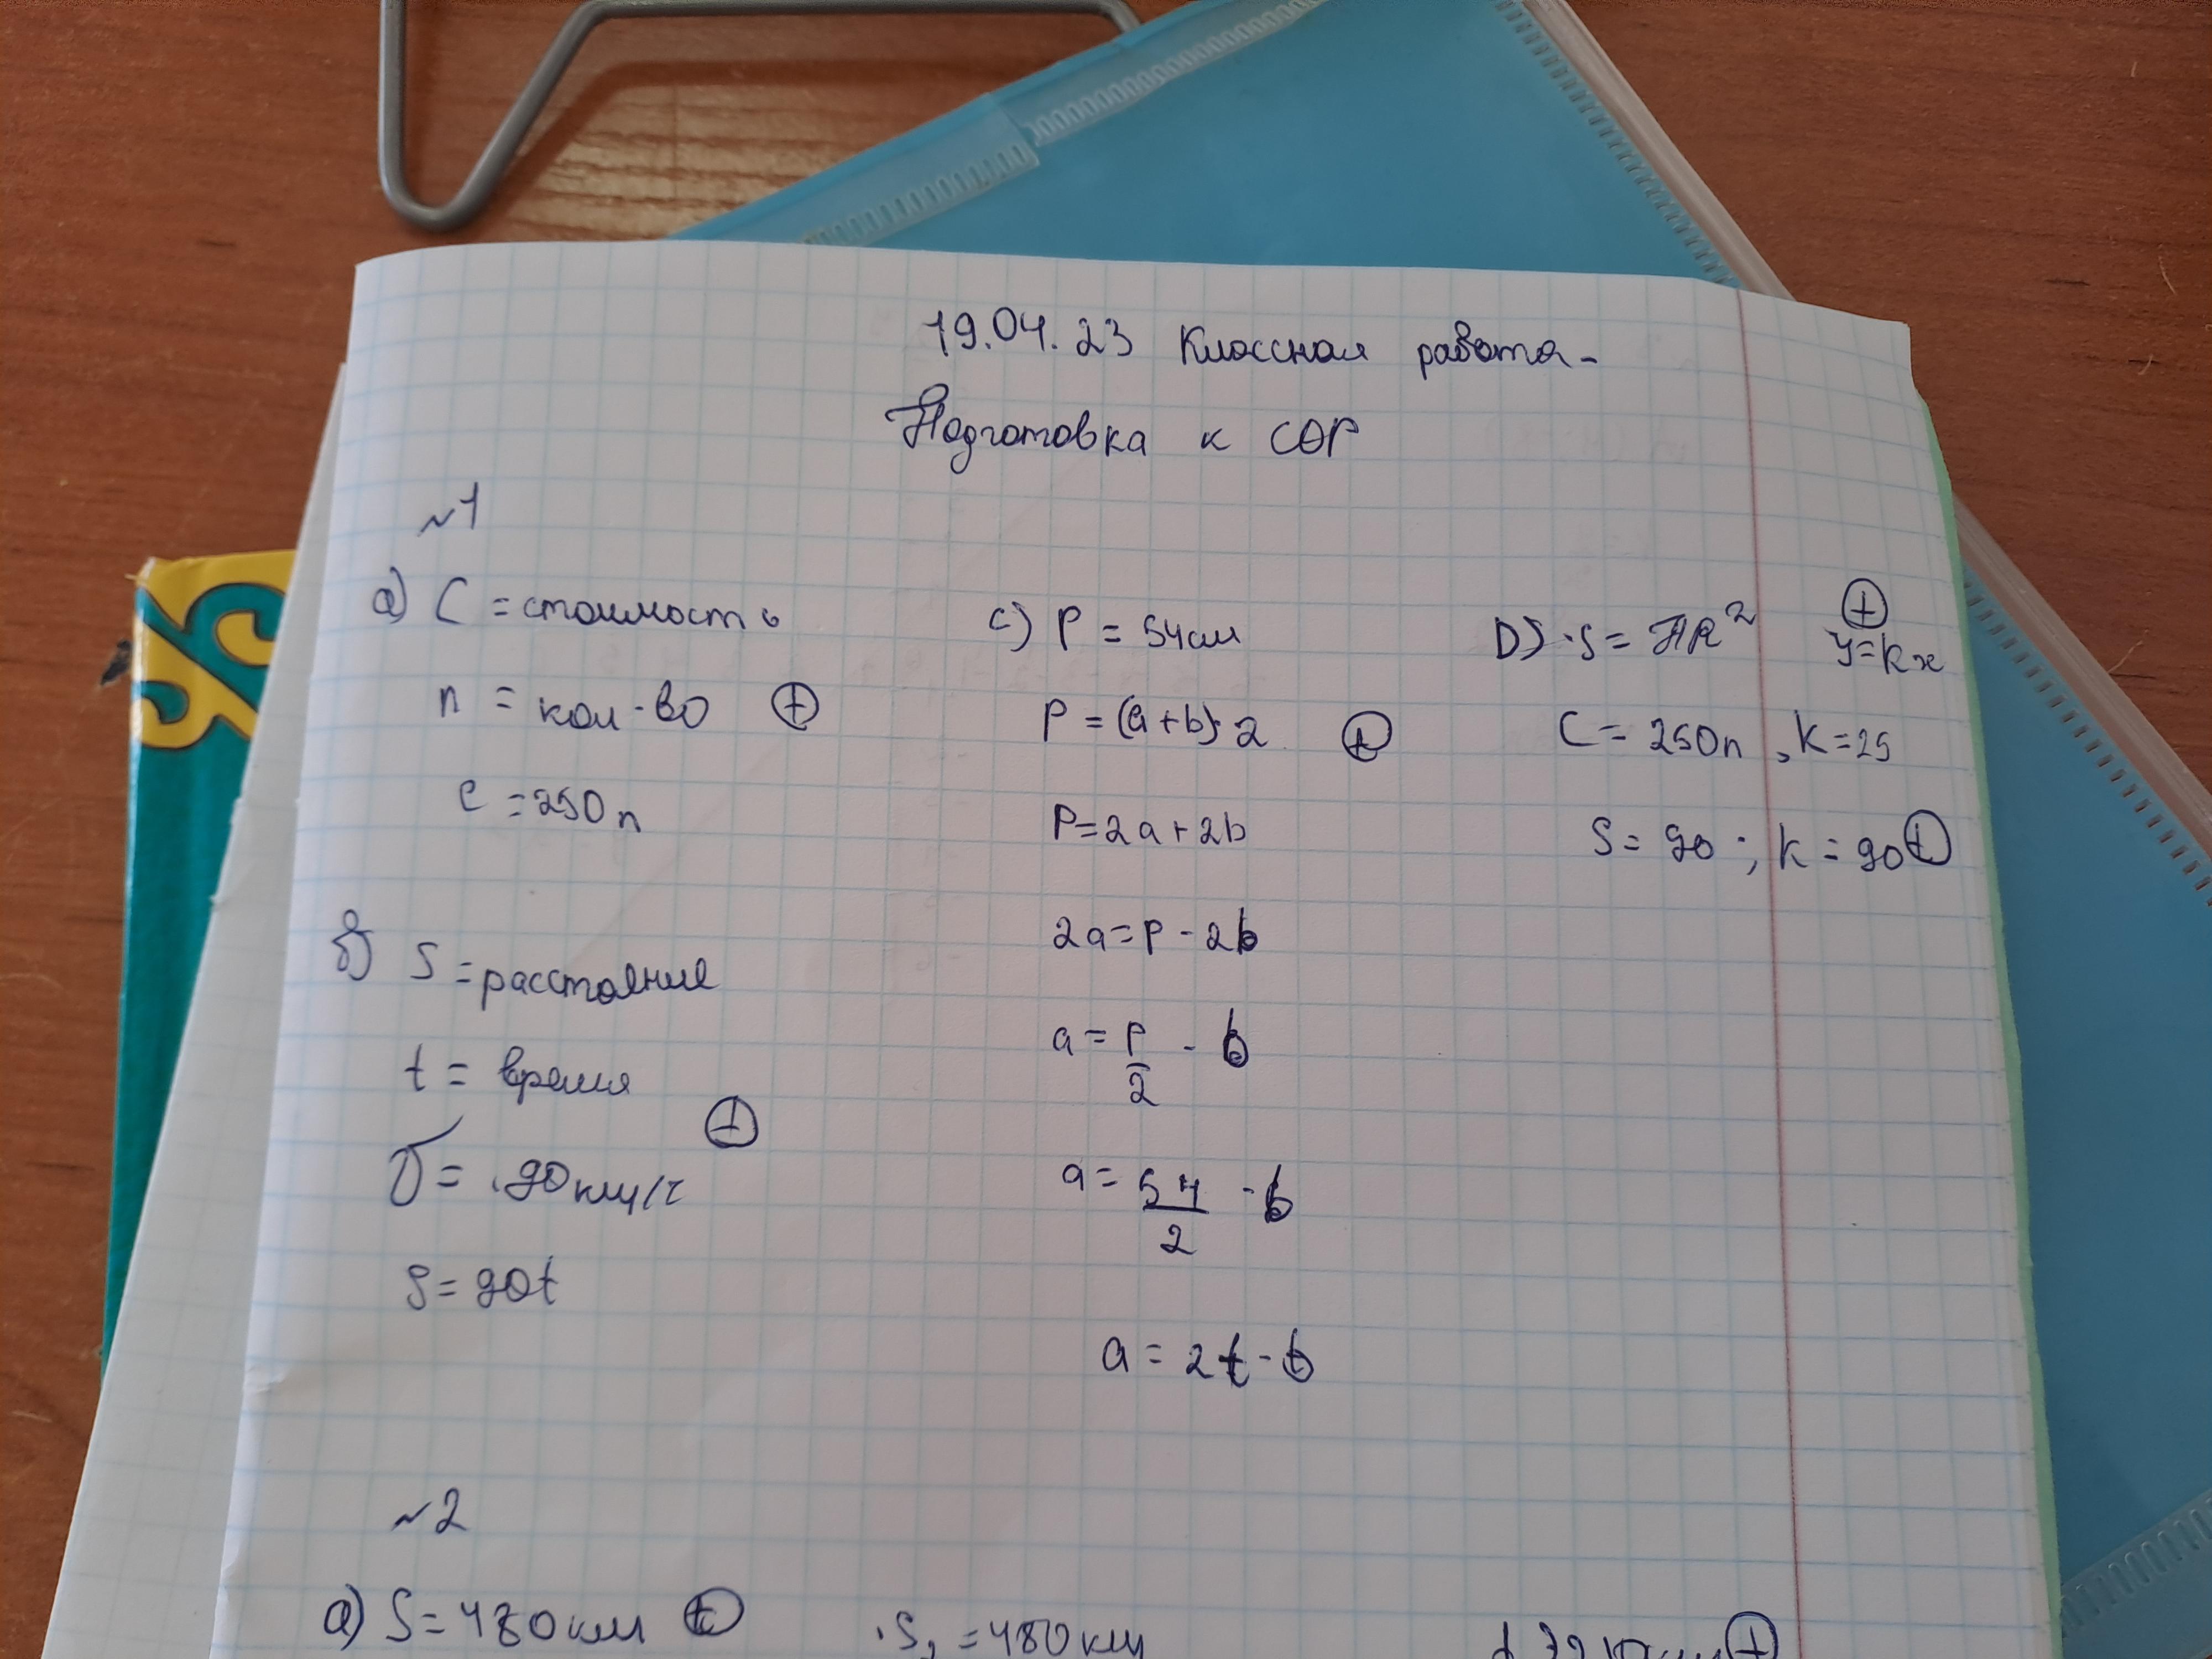 19.04.23 Классная работа-
Подготовка к СОР
~1
a) C = стоимость
n = кол-во +
c = 250n
б) S = расстояние
t = время
+
V = 90 км/ч
S = 90t
c) P = 54см
P = (a+b)·2 +
P = 2a + 2b
2a = P - 2b
a = P/2 - b
a = 54/2 - b
a = 27 - b
D) S = πR² +
y = kx
C = 250n, k = 25
S = 90 ; k = 90 +
~2
a) S = 480 км +
S, = 480 км
+